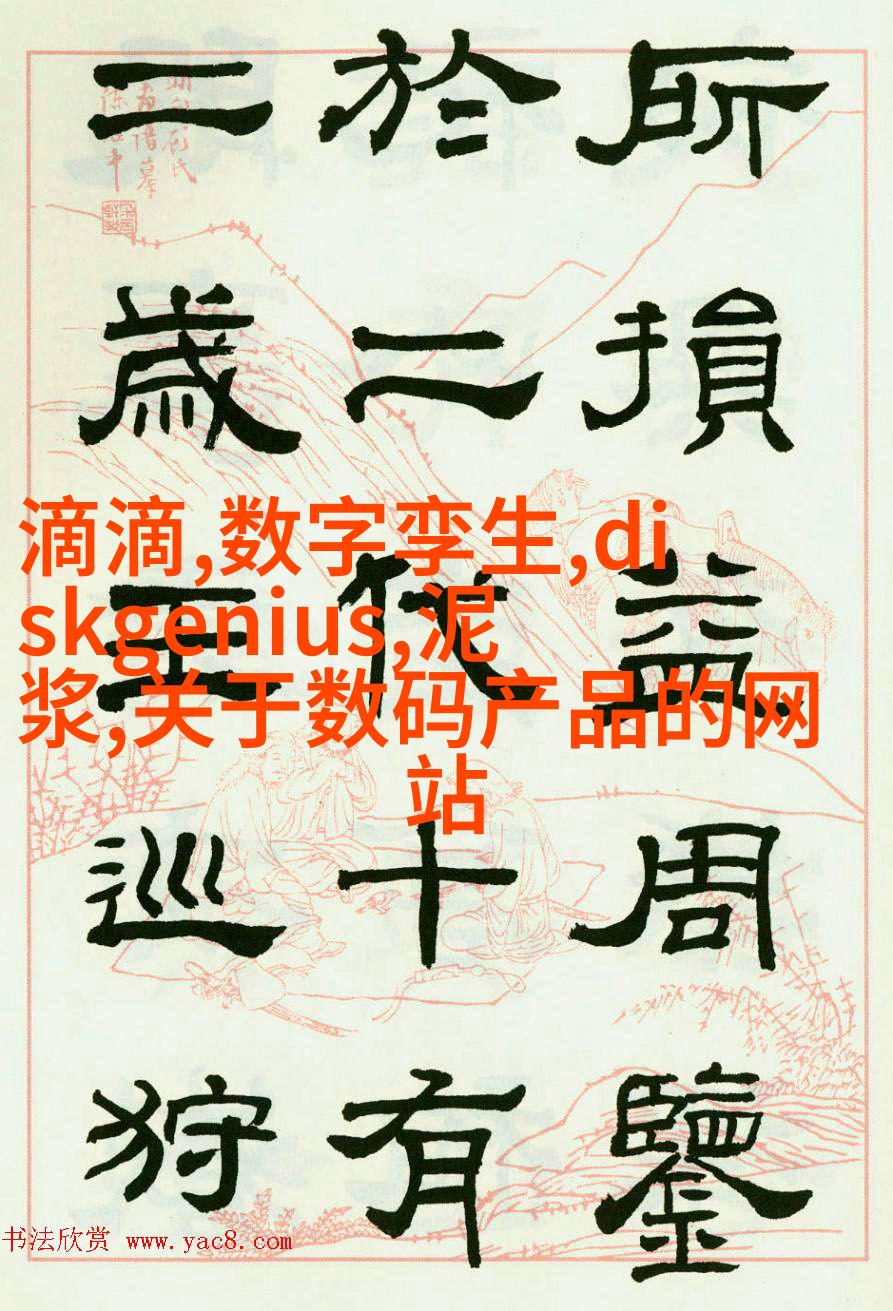 所損益周鑒
於二代十有
二歲王巡狩
滴滴,数字孪生,di
skgenius,泥
浆,关于数码产品的网
站
书法欣赏 www.yac8.com